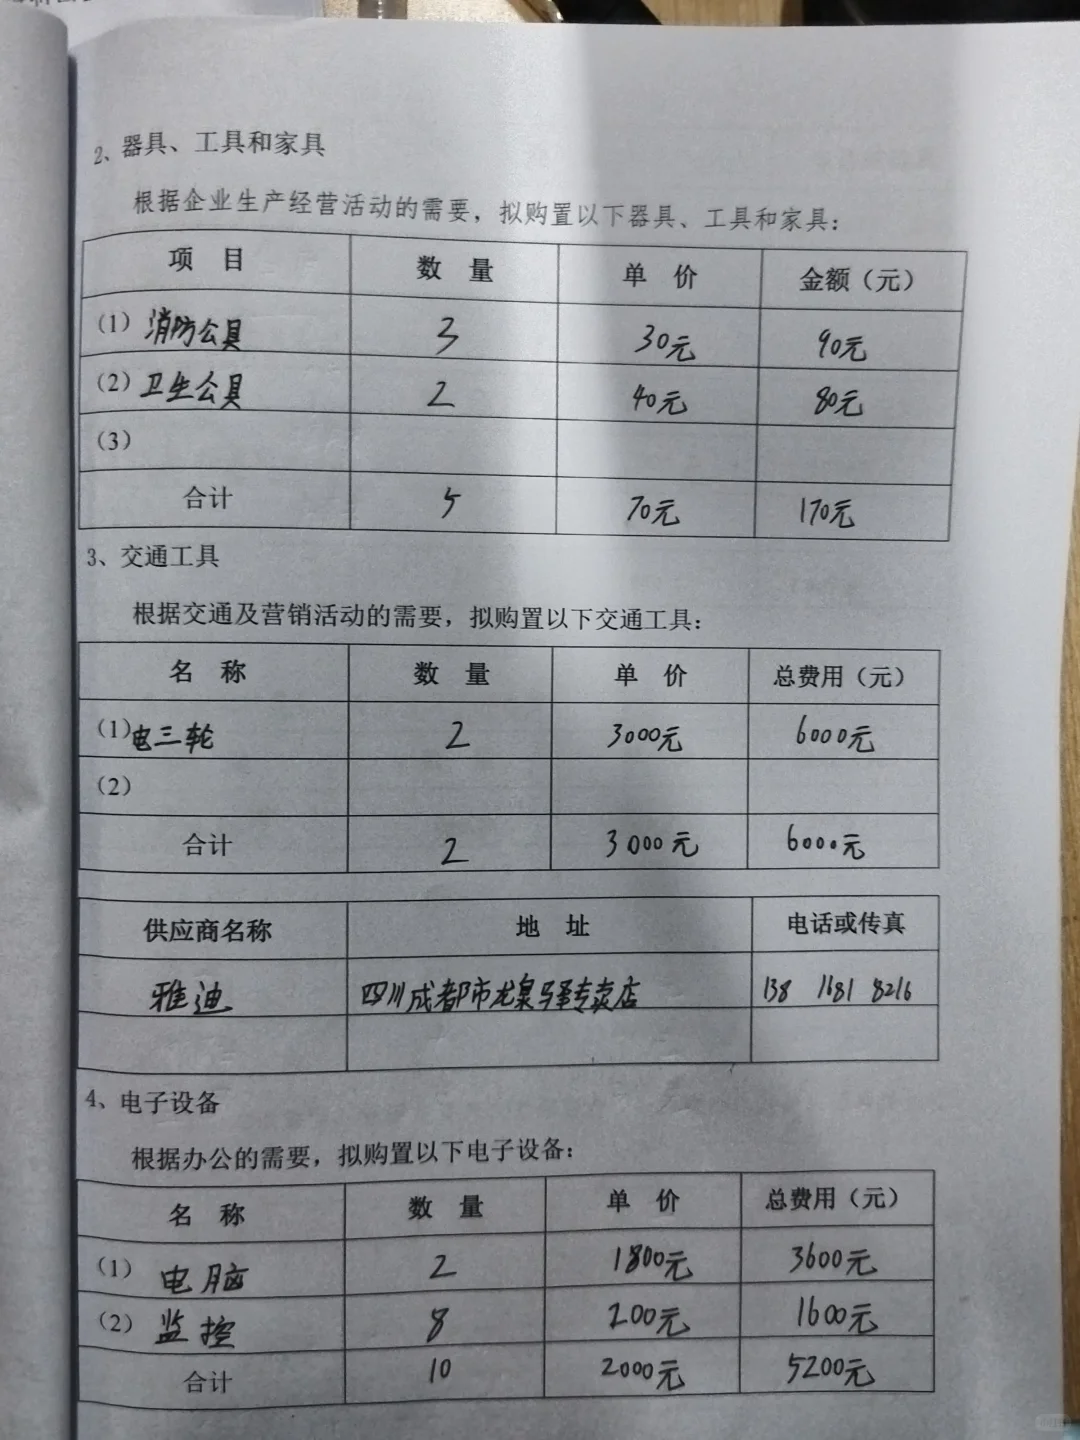 2、器具、工具和家具
根据企业生产经营活动的需要，拟购置以下器具、工具和家具：
项 目 数 量 单 价 金额（元）
（1）消防公具 3 30元 90元
（2）卫生公具 2 40元 80元
（3）
合计 5 70元 170元
3、交通工具
根据交通及营销活动的需要，拟购置以下交通工具：
名 称 数 量 单 价 总费用（元）
（1）电三轮 2 3000元 6000元
（2）
合计 2 3000元 6000元
供应商名称 地 址 电话或传真
雅迪 四川成都市龙泉驿专卖店 138 1681 8216
4、电子设备
根据办公的需要，拟购置以下电子设备：
名 称 数 量 单 价 总费用（元）
（1）电脑 2 1800元 3600元
（2）监控 8 200元 1600元
合计 10 2000元 5200元